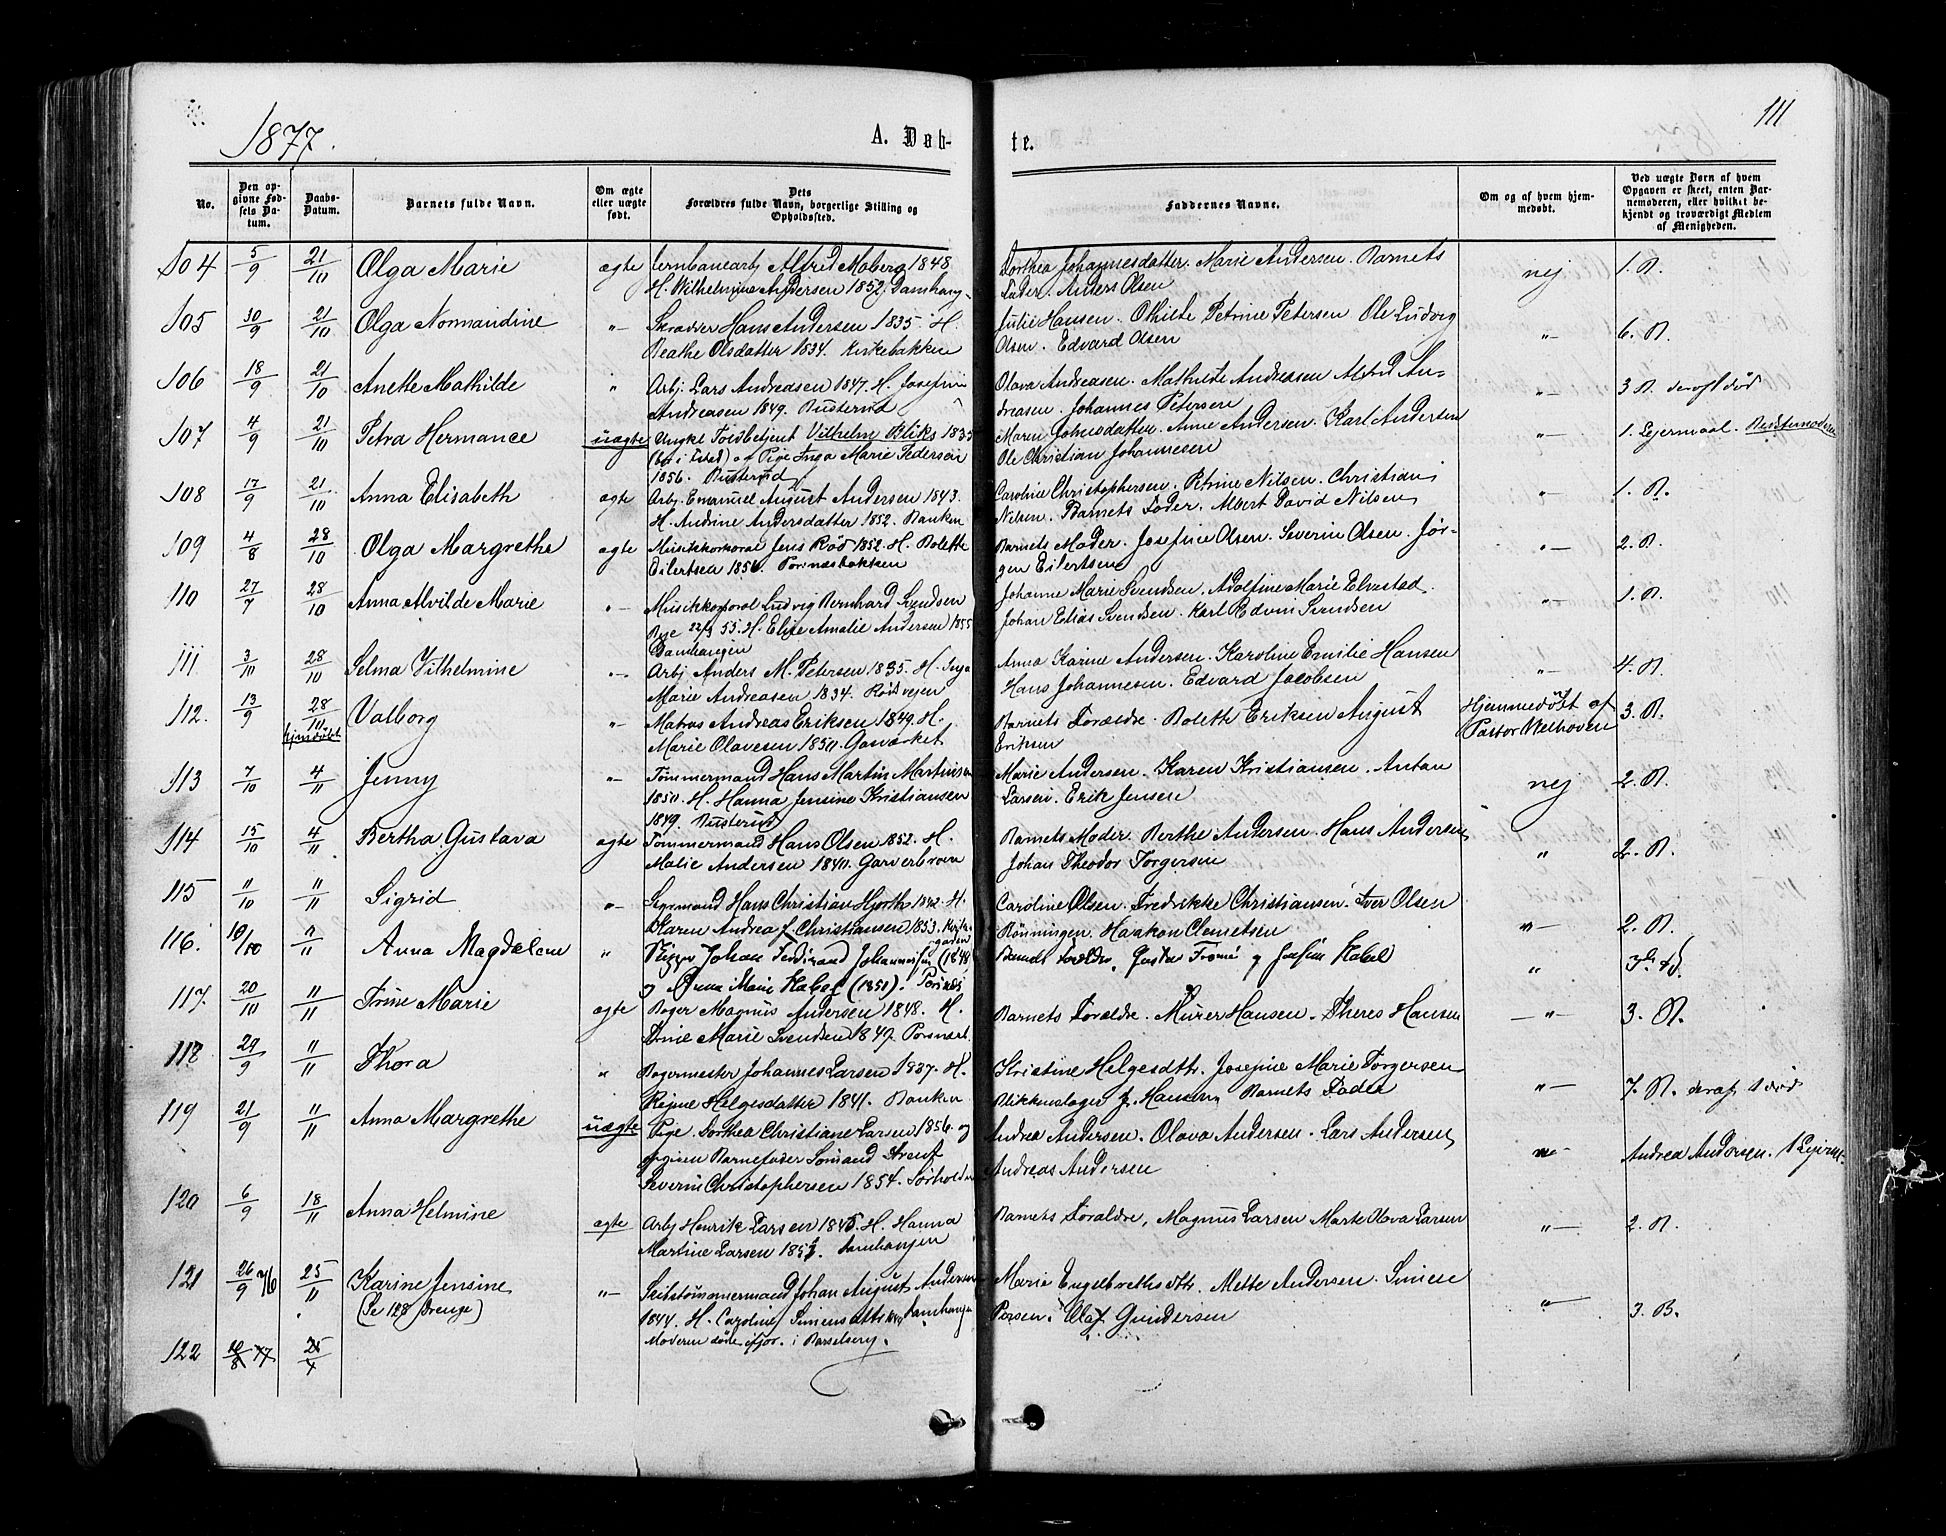 1877.
A. Døb-
te.
111
No.
Den op-
givne Fød-
sels Da-
tum.
Daabs-
Datum.
Barnets fulde Navn.
Om ægte
eller uægte
født.
Dets
Forældres fulde Navn, borgerlige Stilling og
Opholdssted.
Faddernes Navne.
Om og af hvem hjem-
medøbt.
Ved uægte Børn af hvem
Opgaven er skeet, enten Bar-
nemoderen, eller hvilket be-
kjendt og troværdigt Medlem
af Menigheden.
104 5/9 21/10 Olga Marie ægte Jernbanearb Alfred Moberg 1848
H. Wilhelmine Andersen 1852. Damhaug
Dorthea Johannesdatter. Marie Andersen. Barnets
Fader. Anders Olsen
nej 1. B.
105 30/9 21/10 Olga Normandine "- Skrædder Hans Andersen 1835. H.
Beathe Olsdatter 1834. Kirkebakken
Julie Hansen. Othilie Petrine Petersen Ole Ludvig
Olsen. Edvard Olsen
"- 6. B.
106 18/9 21/10 Anette Mathilde " Arbj. Lars Andreasen 1847. H. Josefine
Andreasen 1849. Busterud
Olava Andreasen. Mathilde Andreasen Alfred An-
dreasen. Johannes Petersen
"- 3 B. deraf 1 død
107 4/9 21/10 Petra Hermance uægte Ungkl Toldbetjent Vilhelm Bliks 1835
Pige Inga Marie Pedersen
1856. Busterud
Maren Johnsdatter. Anne Andersen. Karl Andersen
Ole Christian Johannesen
"- 1. Lejermaal. Bestemoderen
108 17/9 21/10 Anna Elisabeth ægte Arbj. Emanuel August Andersen 1843.
H. Andrine Andersdatter 1852. Banken
Caroline Christophersen. Petrine Nilsen. Christian
Nilsen. Barnets Fader. Albert David Nilsen
"- 1. B.
109 4/8 28/10 Olga Margrethe ægte Musikkorporal Jens Rød 1852. H. Bolette
Eilertsen 1856. Porsnæsbakken
Barnets Moder. Josefine Olsen. Severin Olsen. Jør-
gen Eilertsen
"- 2. B.
110 27/7 28/10 Anna Alvilde Marie "- Musikkorporal Ludvig Bernhard Svendsen
Bye 22/3 55. H. Elise Amalie Andersen 1855
Damhaugen
Johanne Marie Svendsen. Adolfine Marie Elvestad.
Johan Elias Svendsen. Karl Edvin Svendsen
"- 1. B.
111 3/10 28/10 Selma Vilhelmine "- Arbj Anders M. Petersen 1835. H. Inga
Marie Andreasen 1834. Rødsvejen
Anna Karine Andersen. Karoline Emilie Hansen
Hans Johannesen. Edvard Jacobsen
"- 4. B.
112. 13/9 28/10
hjemdøbt
Valborg "- Matros Andreas Eriksen 1849. H.
Marie Olavesen 1850. Gasværket
Barnets Forældre. Bolette Eriksen August
Eriksen
Hjemmedøbt af
Pastor Welhoven
3. B.
113 7/10 4/11 Jenny "- Tømmermand Hans Martin Martinsen
1850. H. Hanna Jensine Kristiansen
1849. Busterud
Marie Andersen. Karen Kristiansen. Anton
Larsen. Erik Jensen
nej 2. B.
114 15/10 4/11 Bertha Gustava ægte Tømmermand Hans Olsen 1852. H.
Malie Andersen 1840. Garverbroen
Barnets Moder. Berthe Andersen. Hans Andersen
Johan Theodor Torgersen
" 2. B.
115 11/10 11/11 Sigrid "- Hans Christian Hjorth 1842. H.
Karen Andrea f. Christiansen 1853.
Caroline Olsen. Fredrikke Christiansen. Iver Olsen
Rønningen. Haakon Clemetsen
"- 2. B.
116. 10/10 11/11 Anna Magdalene " Skipper Johan Ferdinand Johannesen (1848)
og Anna Marie Kabel (1851). Porsnæs
Barnets Forældre, Gustav Tromé og Josefine Kabel
"
117. 20/10 11/11 Trine Marie ægte Bager Magnus Andersen 1848. H.
Trine Marie Svendsen 1849. Porsnæs
Barnets Forældre. Murer Hansen. Theres Hansen
-"- 3. B.
118 29/9 11/11 Thora " Bagermester Johannes Larsen 1837. H.
Regine Helgesdatter 1841. Banken
Kristine Helgesdtr. Josefine Marie Torgersen
Blikkenslager J. Hansen. Barnets Fader
"- 7. B. deraf 1 død
119 21/9 11/11 Anna Margrethe uægte Pige Dorthea Christiane Larsen 1856. og
opgiven Barnefader Sømand Arent
Severin Christophersen 1854.
Andrea Andersen. Olava Andersen. Lars Andersen
Andreas Andersen
"- Andrea Andersen. 1 Lejerm.
120 6/9 18/11 Anna Helmine ægte Arbj Henrik Larsen 1845. H. Hanna
Martine Larsen 1853. Damhaugen
Barnets Forældre, Magnus Larsen Marte Olava Larsen
"- 2. B.
121 26/9 76 25/11 Karine Jensine
(Se 128 Drenge)
"- Skibstømmermand Johan August Andersen
1844. H. Caroline Simensdtr Damhaugen
Moderen døde ifjor i Barselseng.
Marie Engelbrethsdtr. Mette Andersen. Simen
Olaf Gundersen
"- 3. B.
122